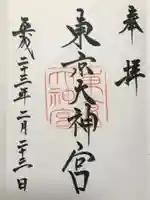 奉拝
東京大神宮
平成二十三年二月二十二日